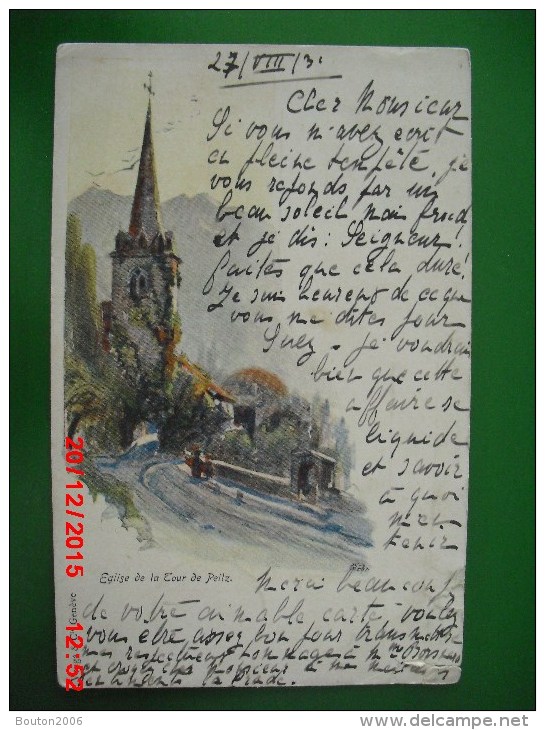 27/VIII/3.
Cher Monsieur
Si vous m'avez ecrit
en pleine tempête, je
vous reponds par un
beau soleil mais froid
et je dis: Seigneur!
faites que cela dure!
Je suis heureux de ce que
vous me dites pour
Suez - je voudrais
bien que cette
affaire se
liquide
et savoir
à quoi
m'en
tenir
Merci beaucoup
de votre aimable carte, voulez
vous etre assez bon pour transmettre
mes respectueux hommages à Mme
et croyez moi monsieur à mes meilleurs
Eglise de la Tour de Peilz.
Genève
20/12/2015
12:52
Bouton2006